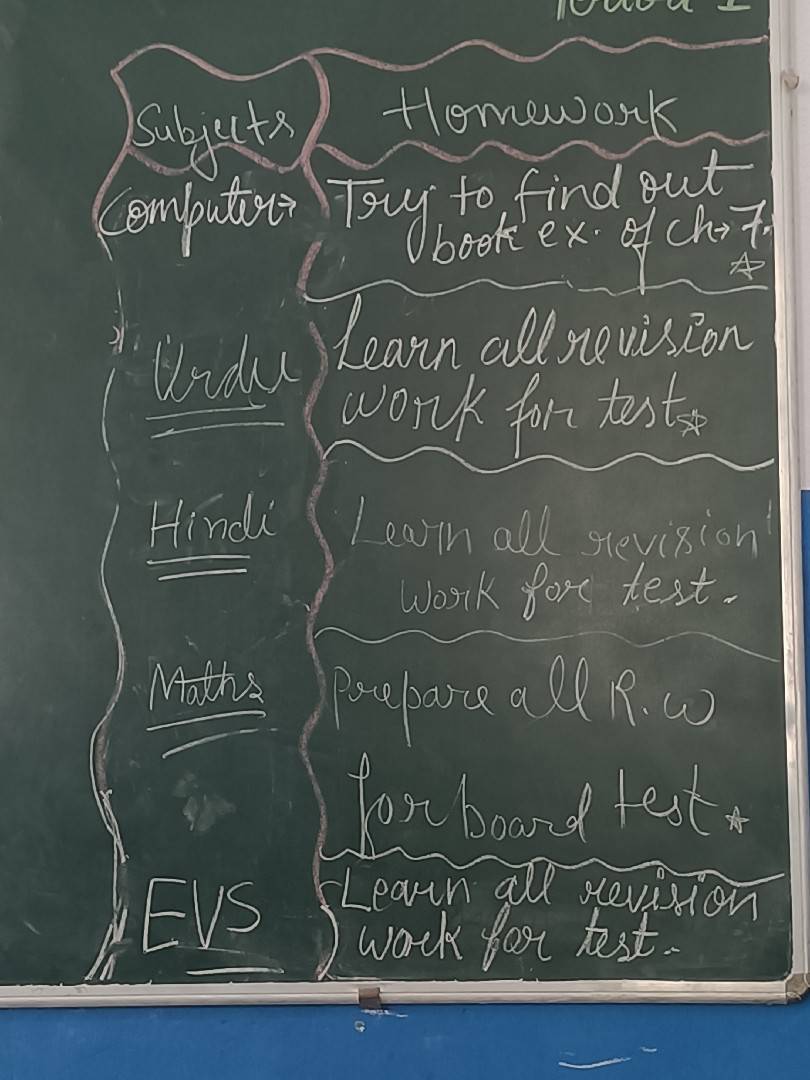 Subjects Homework
Computer→ Try to find out
book ex. of ch→7.
Urdu Learn all revision
work for test
Hindi Learn all revision
work for test.
Maths Prepare all R.W
for board test.
EVS Learn all revision
work for test.